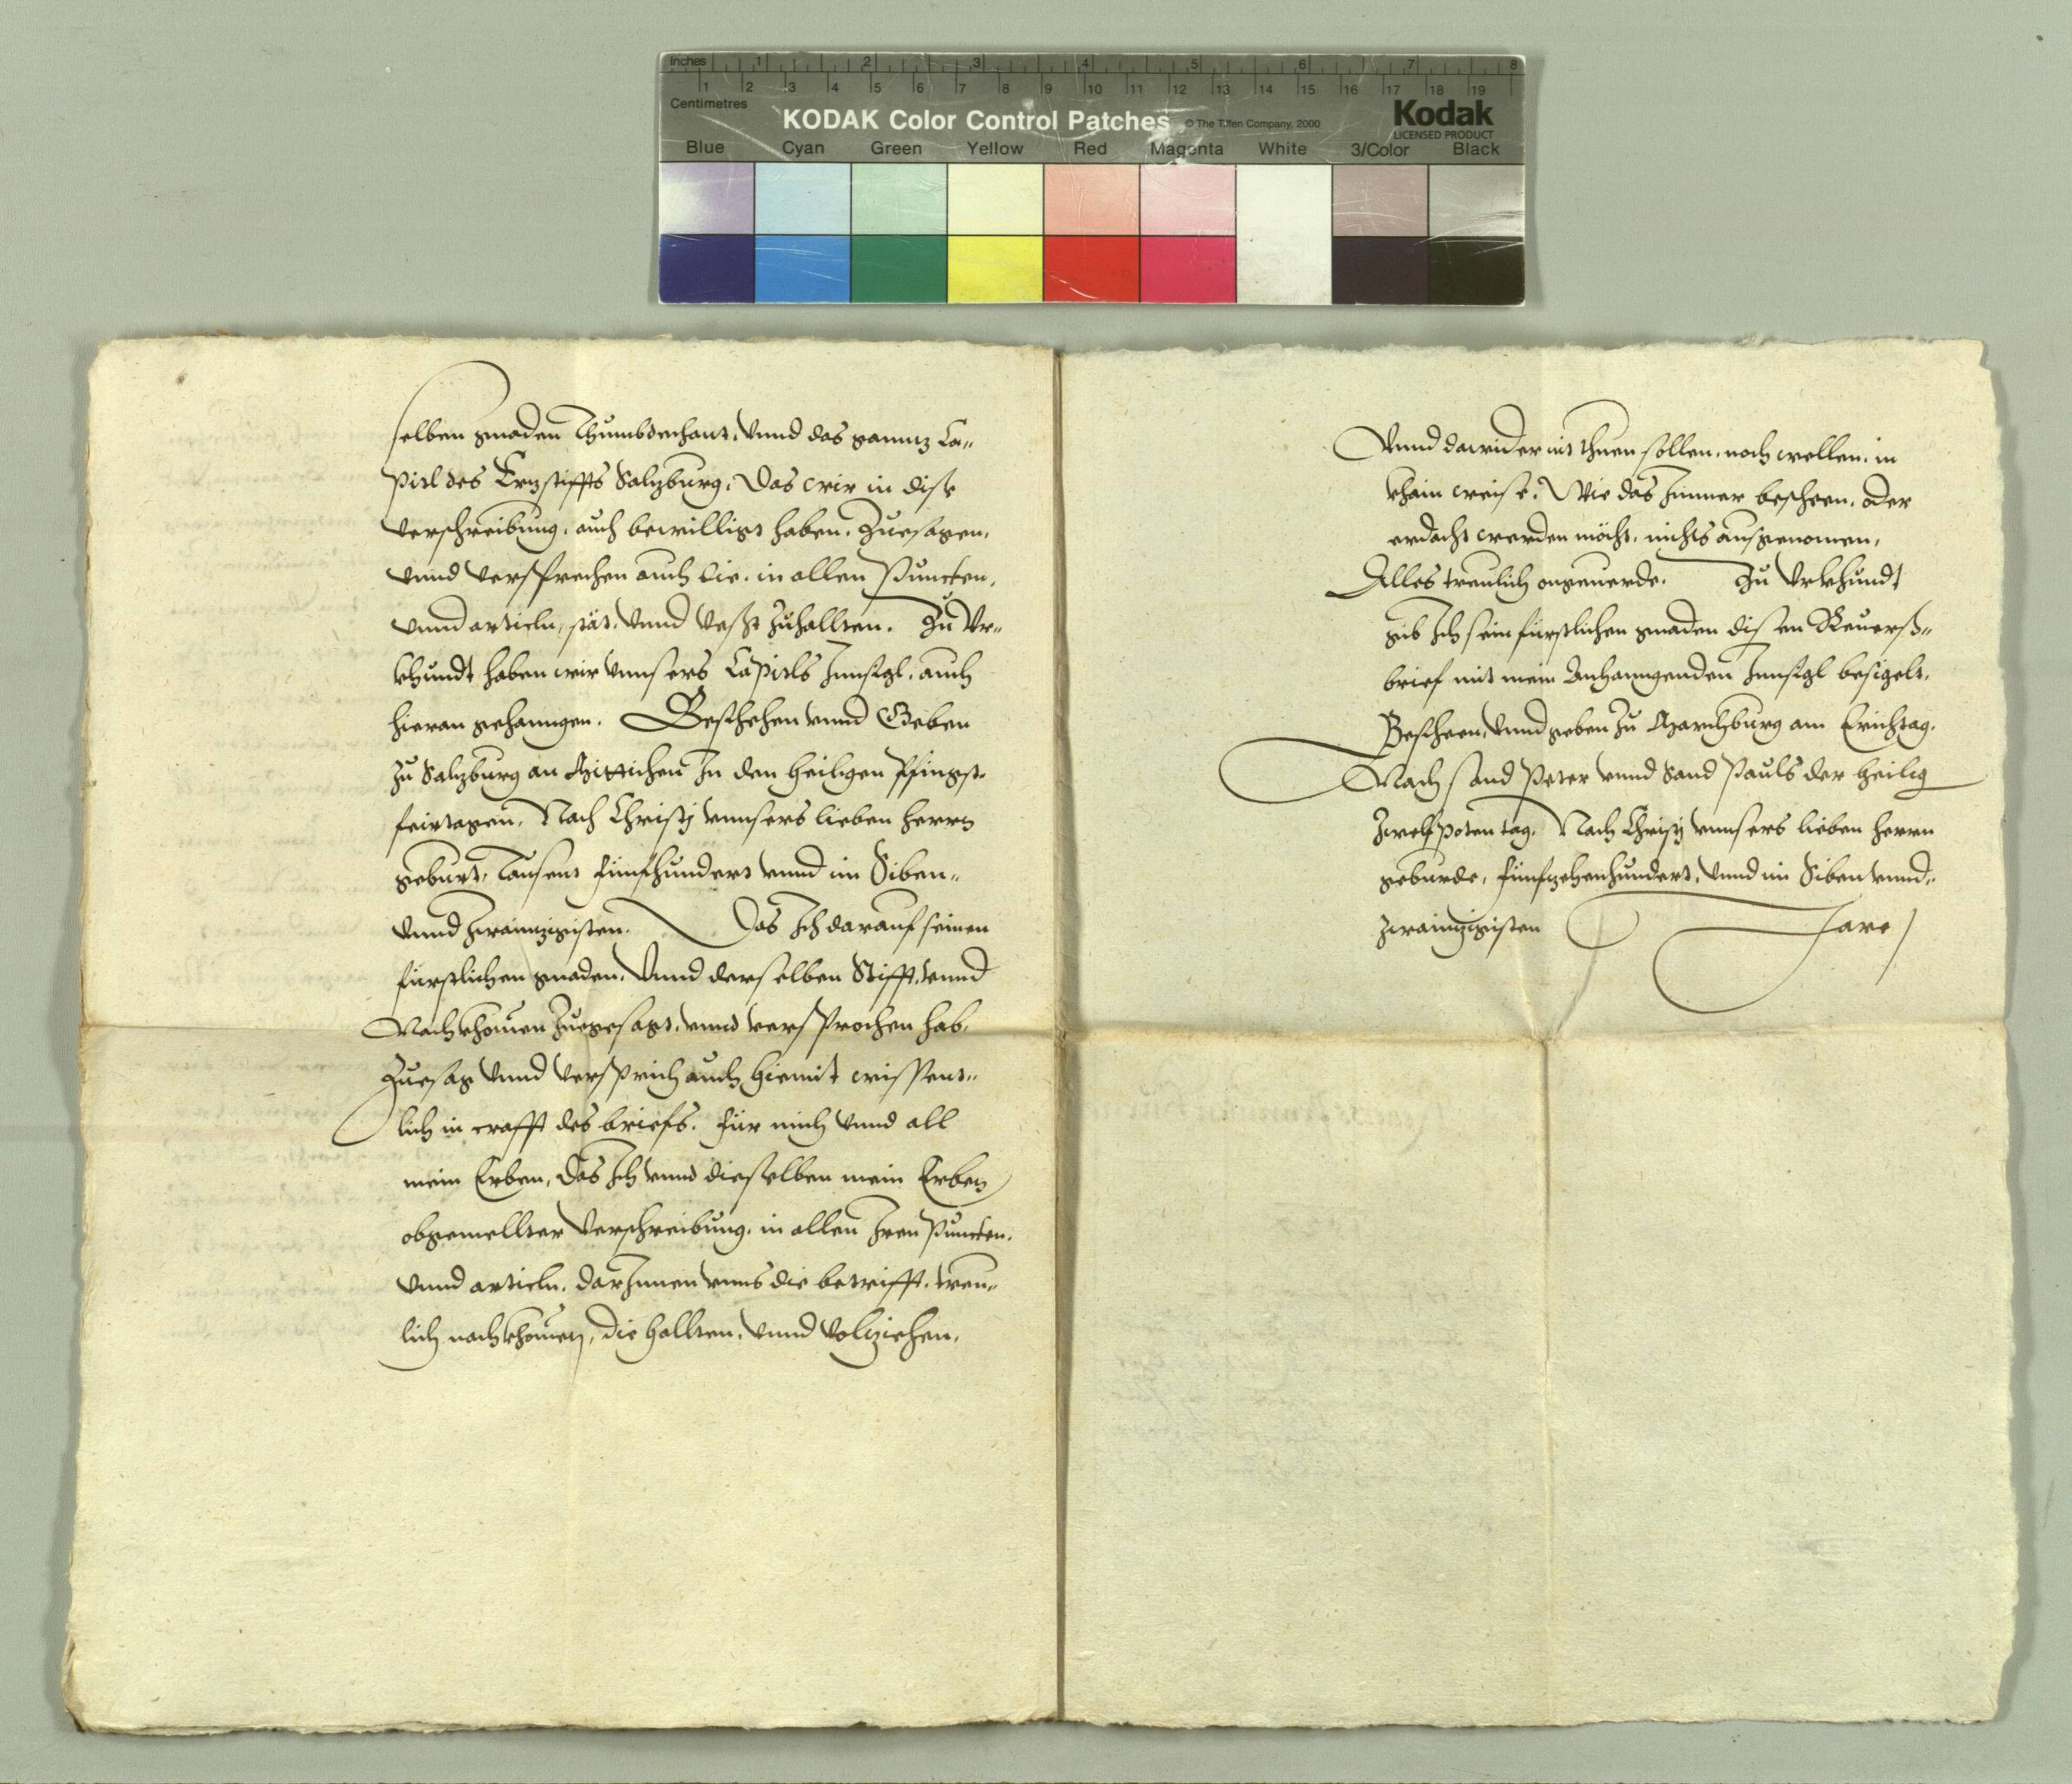 Inches 1 2 3 4 5 6 7 8
1 2 3 4 5 6 7 8 9 10 11 12 13 14 15 16 17 18 19
Centimetres
KODAK Color Control Patches © The Tiffen Company, 2000 Kodak
LICENSED PRODUCT
Blue Cyan Green Yellow Red Magenta White 3/Color Black
selben gnaden Thumbdechant, Vnnd das ganntz Ca„
pitl des Ertzstiffts Saltzburg, Das wir in dise
verschreibung, auch bewilligt haben, Zuesagen,
vnnd versprechen auch die, in allen Puncten,
vnnd articln, stät, vnnd vesst zuhallten. Zu Vr„
khundt haben wir vnnsers Capitls Innsigl, auch
hieran gehanngen. Geschehen vnnd Geben
zu Saltzburg an Mittichen In den heiligen Pfingst„
feirtagen, Nach Christj vnnsers lieben herrn
geburt, Tausent fünfhundert vnnd im Siben„
vnnd zwaintzigisten. Das Ich darauf seinen
fürstlichen gnaden, Vnnd derselben Stifft, vnnd
Nachkhomen zuegesagt, vnnd versprochen hab,
Zuesag vnnd versprich auch hiemit wissent„
lich in crafft des briefs, für mich vnnd all
mein Erben, Das Ich vnnd dieselben mein Erben
obgemellter Verschreibung, in allen Iren Puncten,
vnnd articln, darInnen vnns die betrifft, treu„
lich nachkhomen, die hallten, vnnd volziehen,
Vnnd dawider nit thuen sollen, noch wellen, in
khain weise, Wie das Immer bescheen, oder
erdacht werden möcht, nichts ausgenomen,
Alles treulich ongeuerde. Zu Vrkhundt
gib Ich sein fürstlichen gnaden disen Reuerß„
brief mit mein Anhanngenden Innsigl besigelt,
Bescheen, vnnd geben zu Marchburg am Erichtag,
Nach sand Peter vnnd Sand Pauls der heilig
zwelfpoten tag, Nach Christj vnnsers lieben herrn
geburde, fünfzehenhundert, Vnnd im Siben vnnd„
zwaintzigisten Jare